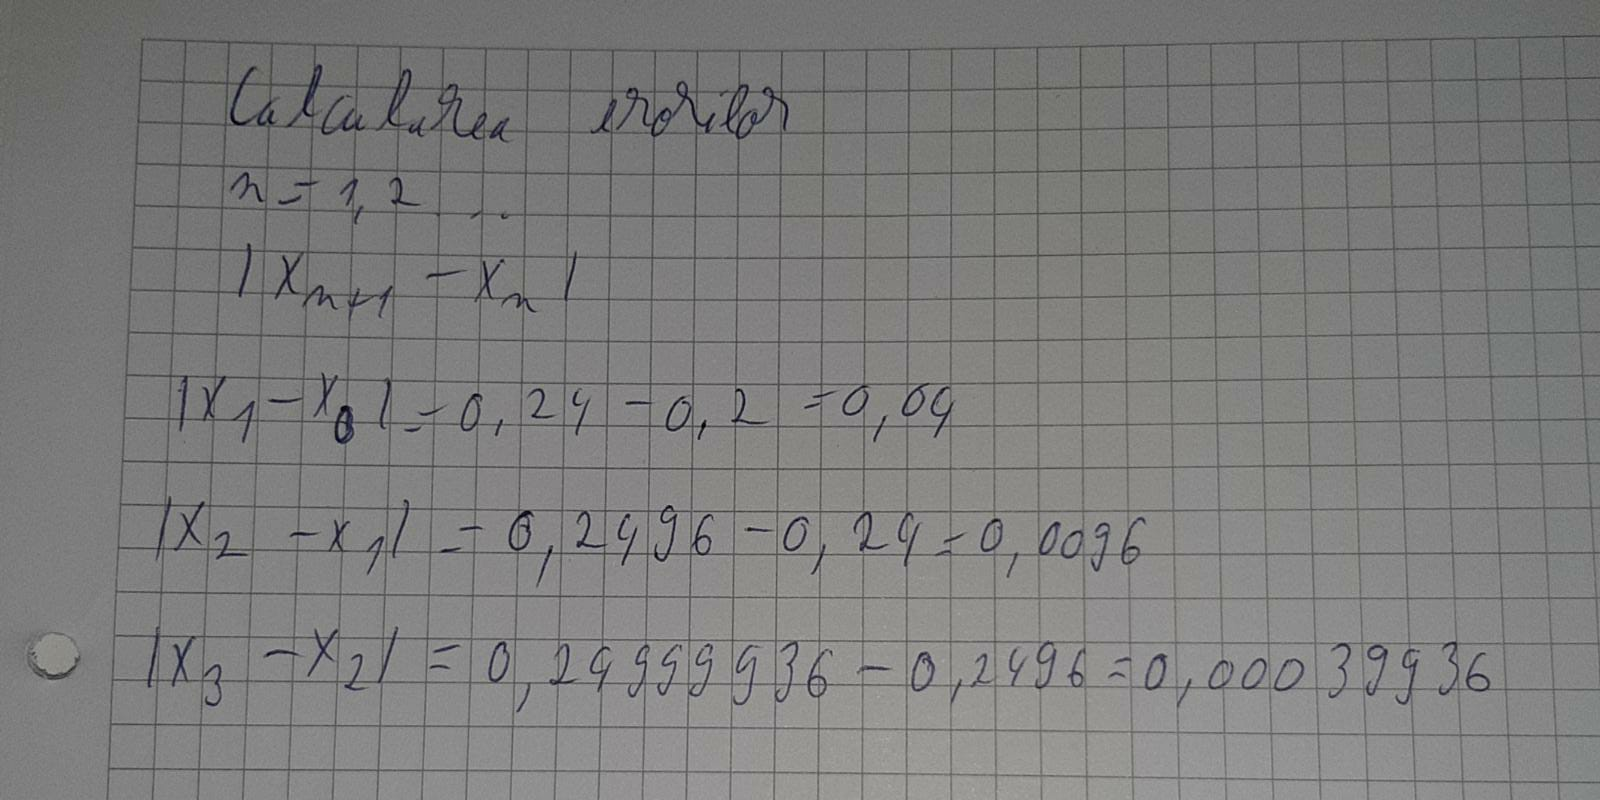 Calcularea erorilor
n = 1, 2 ...
|x_{n+1} - x_n|
|x_1 - x_0| = 0,24 - 0,2 = 0,04
|x_2 - x_1| = 0,2496 - 0,24 = 0,0096
|x_3 - x_2| = 0,24999936 - 0,2496 = 0,00039936